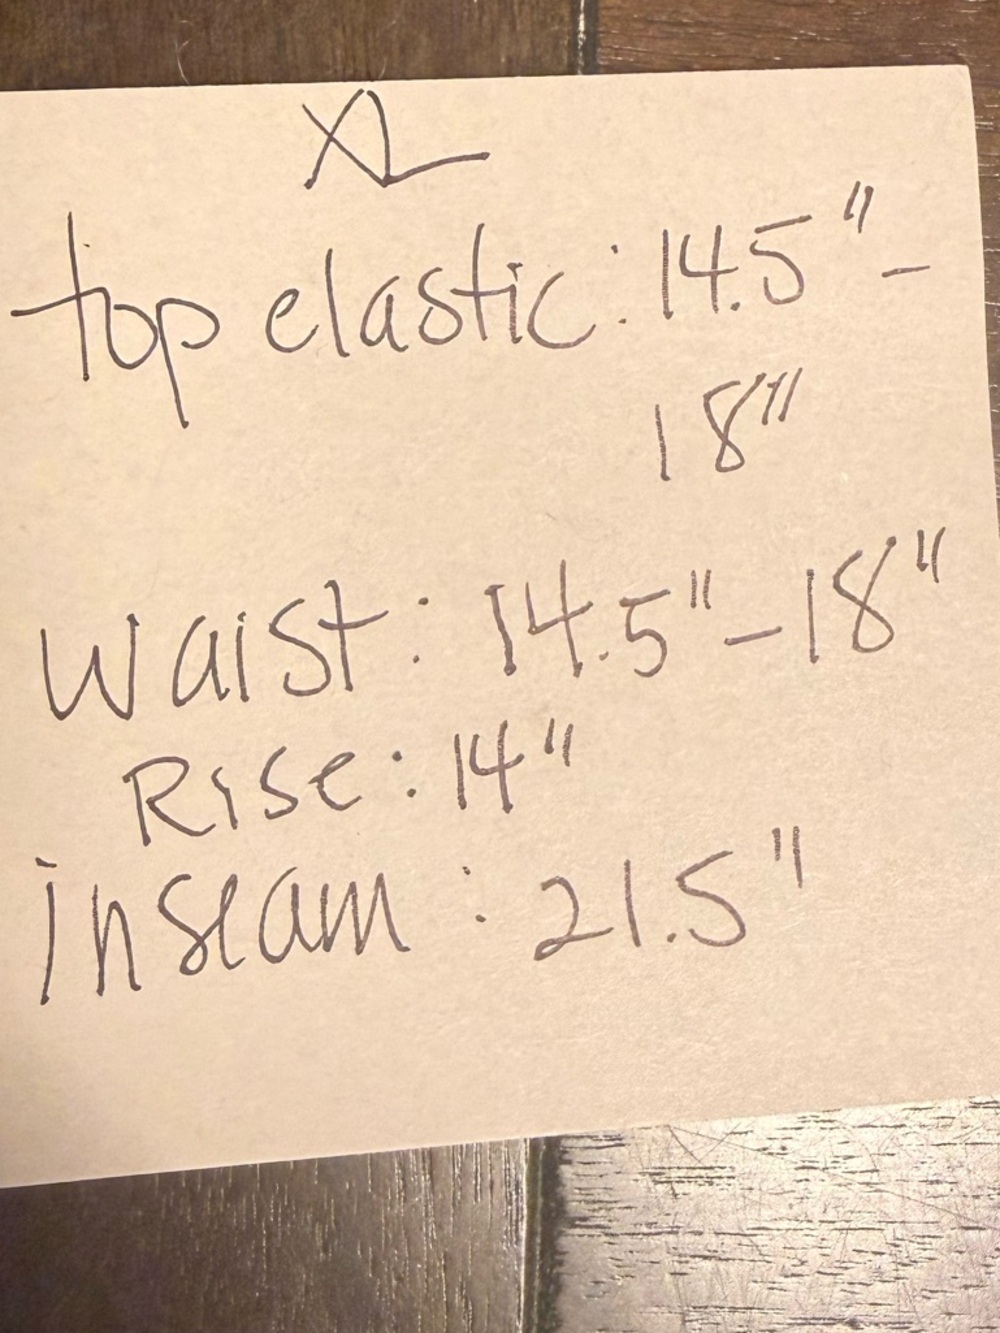 XL
top elastic: 14.5" -
18"
waist: 14.5" - 18"
Rise: 14"
inseam: 21.5"